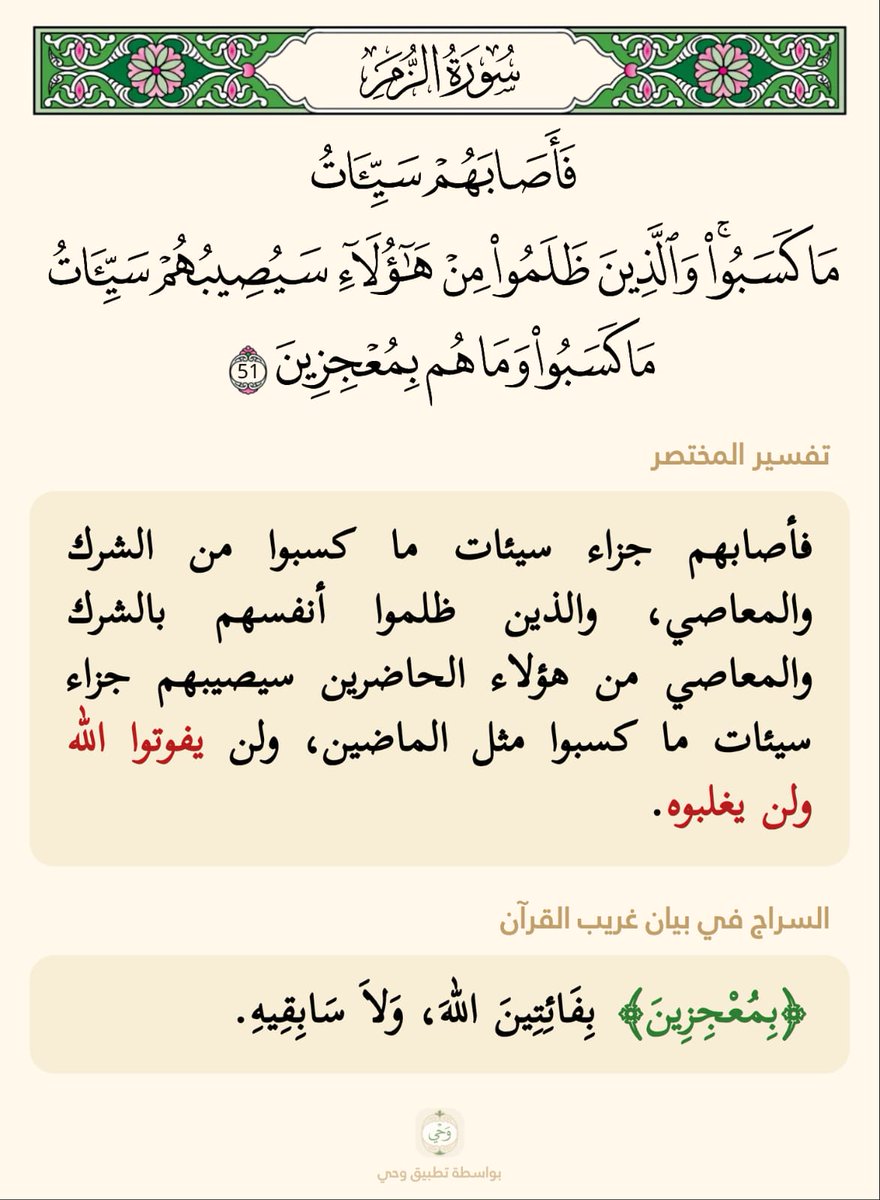 سُورَةُ الزُّمَرِ
فَأَصَابَهُمْ سَيِّـَٔاتُ
مَا كَسَبُوا۟ ۚ وَٱلَّذِينَ ظَلَمُوا۟ مِنْ هَـٰٓؤُلَآءِ سَيُصِيبُهُمْ سَيِّـَٔاتُ
مَا كَسَبُوا۟ وَمَا هُم بِمُعْجِزِينَ 51
تفسير المختصر
فأصابهم جزاء سيئات ما كسبوا من الشرك
والمعاصي، والذين ظلموا أنفسهم بالشرك
والمعاصي من هؤلاء الحاضرين سيصيبهم جزاء
سيئات ما كسبوا مثل الماضين، ولن يفوتوا الله
ولن يغلبوه.
السراج في بيان غريب القرآن
﴿بِمُعْجِزِينَ﴾ بِفَائِتِينَ اللهَ، وَلاَ سَابِقِيهِ.
وَحْي
بواسطة تطبيق وحي